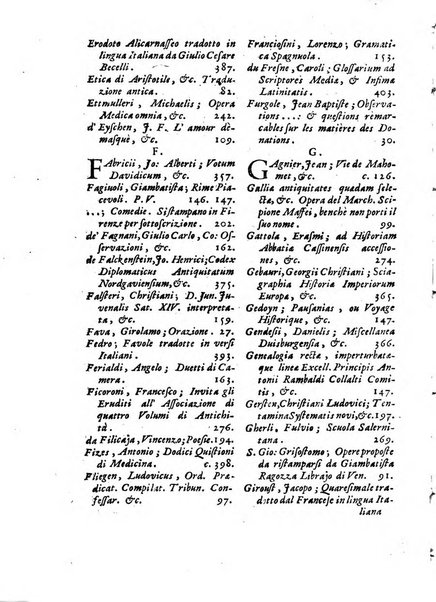 Erodoto Alicarnasseo tradotto in
lingua Italiana da Giulio Cesare
Becelli. 387.
Etica di Aristotile, &c. Tradu-
zione antica. 82.
Ettmulleri, Michaelis; Opera
Medica omnia, &c. 217.
d'Eyschen, J. F. L' amour dé-
masqué, &c. 109.
F.
FAbricii, Jo: Alberti; Votum
Davidicum, &c. 357.
Fagiuoli, Giambatista; Rime Pia-
cevoli. P. V. 146. 147.
...; Comedie. Si stampano in Fi-
renze per sottoscrizione. 202.
de' Fagnani, Giulio Carlo; Os-
servazioni, &c. 162.
de Falckenstein, Jo. Henrici; Codex
Diplomaticus Antiquitatum
Nordgaviensium, &c. 375.
Falsteri, Christiani; D. Jun. Ju-
venalis Sat. XIV. interpreta-
ta, &c. 159.
Fava, Girolamo; Orazione. 27.
Fedro; Favole tradotte in versi
Italiani. 393.
Ferialdi, Angelo; Duetti di Ca-
mera. 163.
Ficoroni, Francesco; Invita gli
Eruditi all' Associazione di
quattro Volumi di Antichi-
tà. 276.
da Filicaja, Vincenzo; Poesie. 194.
Fizes, Antonio; Dodici Quistioni
di Medicina. c. 398.
Fliegen, Ludovicus, Ord. Præ-
dicat. Compilat. Tribun. Con-
fessar. &c. 97.
Franciosini, Lorenzo; Gramati-
ca Spagnuola. 153.
du Fresne, Caroli; Glossarium ad
Scriptores Mediæ, & Infimæ
Latinitatis. 403.
Furgole, Jean Baptiste; Observa-
tions ... & questions remar-
cables sur les matiéres des Do-
nations. 30.
G.
GAgnier, Jean; Vie de Maho-
met, &c. c. 126.
Galliæ antiquitates quædam sele-
ctæ, &c. Opera del March. Sci-
pione Maffei, benchè non porti il
suo nome. 99.
Gattola, Erasmi; ad Historiam
Abbatiæ Cassinensis accessio-
nes, &c. 274.
Gebauri, Georgii Christiani; Scia-
graphia Historiæ Imperiorum
Europæ, &c. 365.
Gedoyn; Pausanias, ou Voyage
Historique, &c. 147.
Gendesii, Danielis; Miscellanea
Duisburgensia, &c. 364.
Genealogia recta, imperturbata-
que linea Excell. Principis An-
toni Rambaldi Collalti Comi-
tis, &c. 147.
Gersten, Christiani Ludovici; Ten-
tamina Systematis novi, &c. 197.
Gherli, Fulvio; Scuola Salerni-
tana. 269.
S. Gio: Grisostomo; Opere proposte
da ristamparsi da Giambatista
Ragozza Librajo di Ven. 91.
Giroust, Jacopo; Quaresimale tra-
dotto dal Francese in lingua Ita-
liana